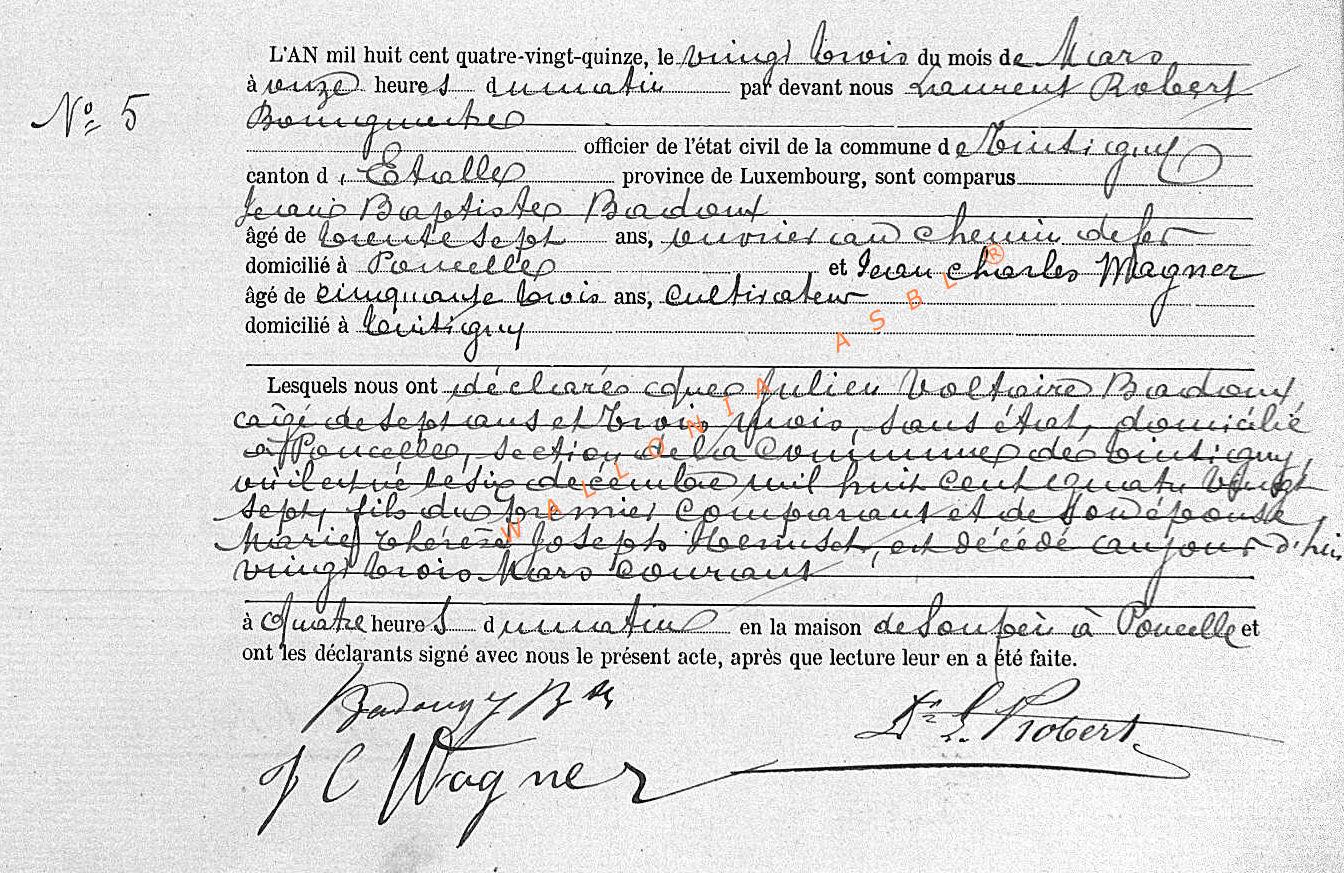 L'AN mil huit cent quatre-vingt-quinze, le vingt trois du mois de Mars
à onze heures du matin par devant nous Laurent Robert
Nº 5
Bourgmestre
officier de l'état civil de la commune de Tintigny
canton d'Etalle province de Luxembourg, sont comparus
Jean Baptiste Badoux
âgé de trente sept ans, ouvrier au chemin de fer
domicilié à Poncelle et Jean Charles Wagner
âgé de cinquante trois ans, cultivateur
domicilié à Tintigny
Lesquels nous ont déclaré que Julien Voltaire Badoux,
âgé de sept ans et trois mois, sans état, domicilié
à Poncelle, section de la Commune de Tintigny,
où il est né le six décembre mil huit cent quatre vingt
sept, fils du premier comparant et de son épouse
Marie Thérèse Joseph, est décédé aujourd'hui
vingt trois Mars courant
à quatre heures du matin en la maison de son père à Poncelle et
ont les déclarants signé avec nous le présent acte, après que lecture leur en a été faite.
Badoux J Bte
Dr L. Robert
J C Wagner
WALLONIA ASBL ®